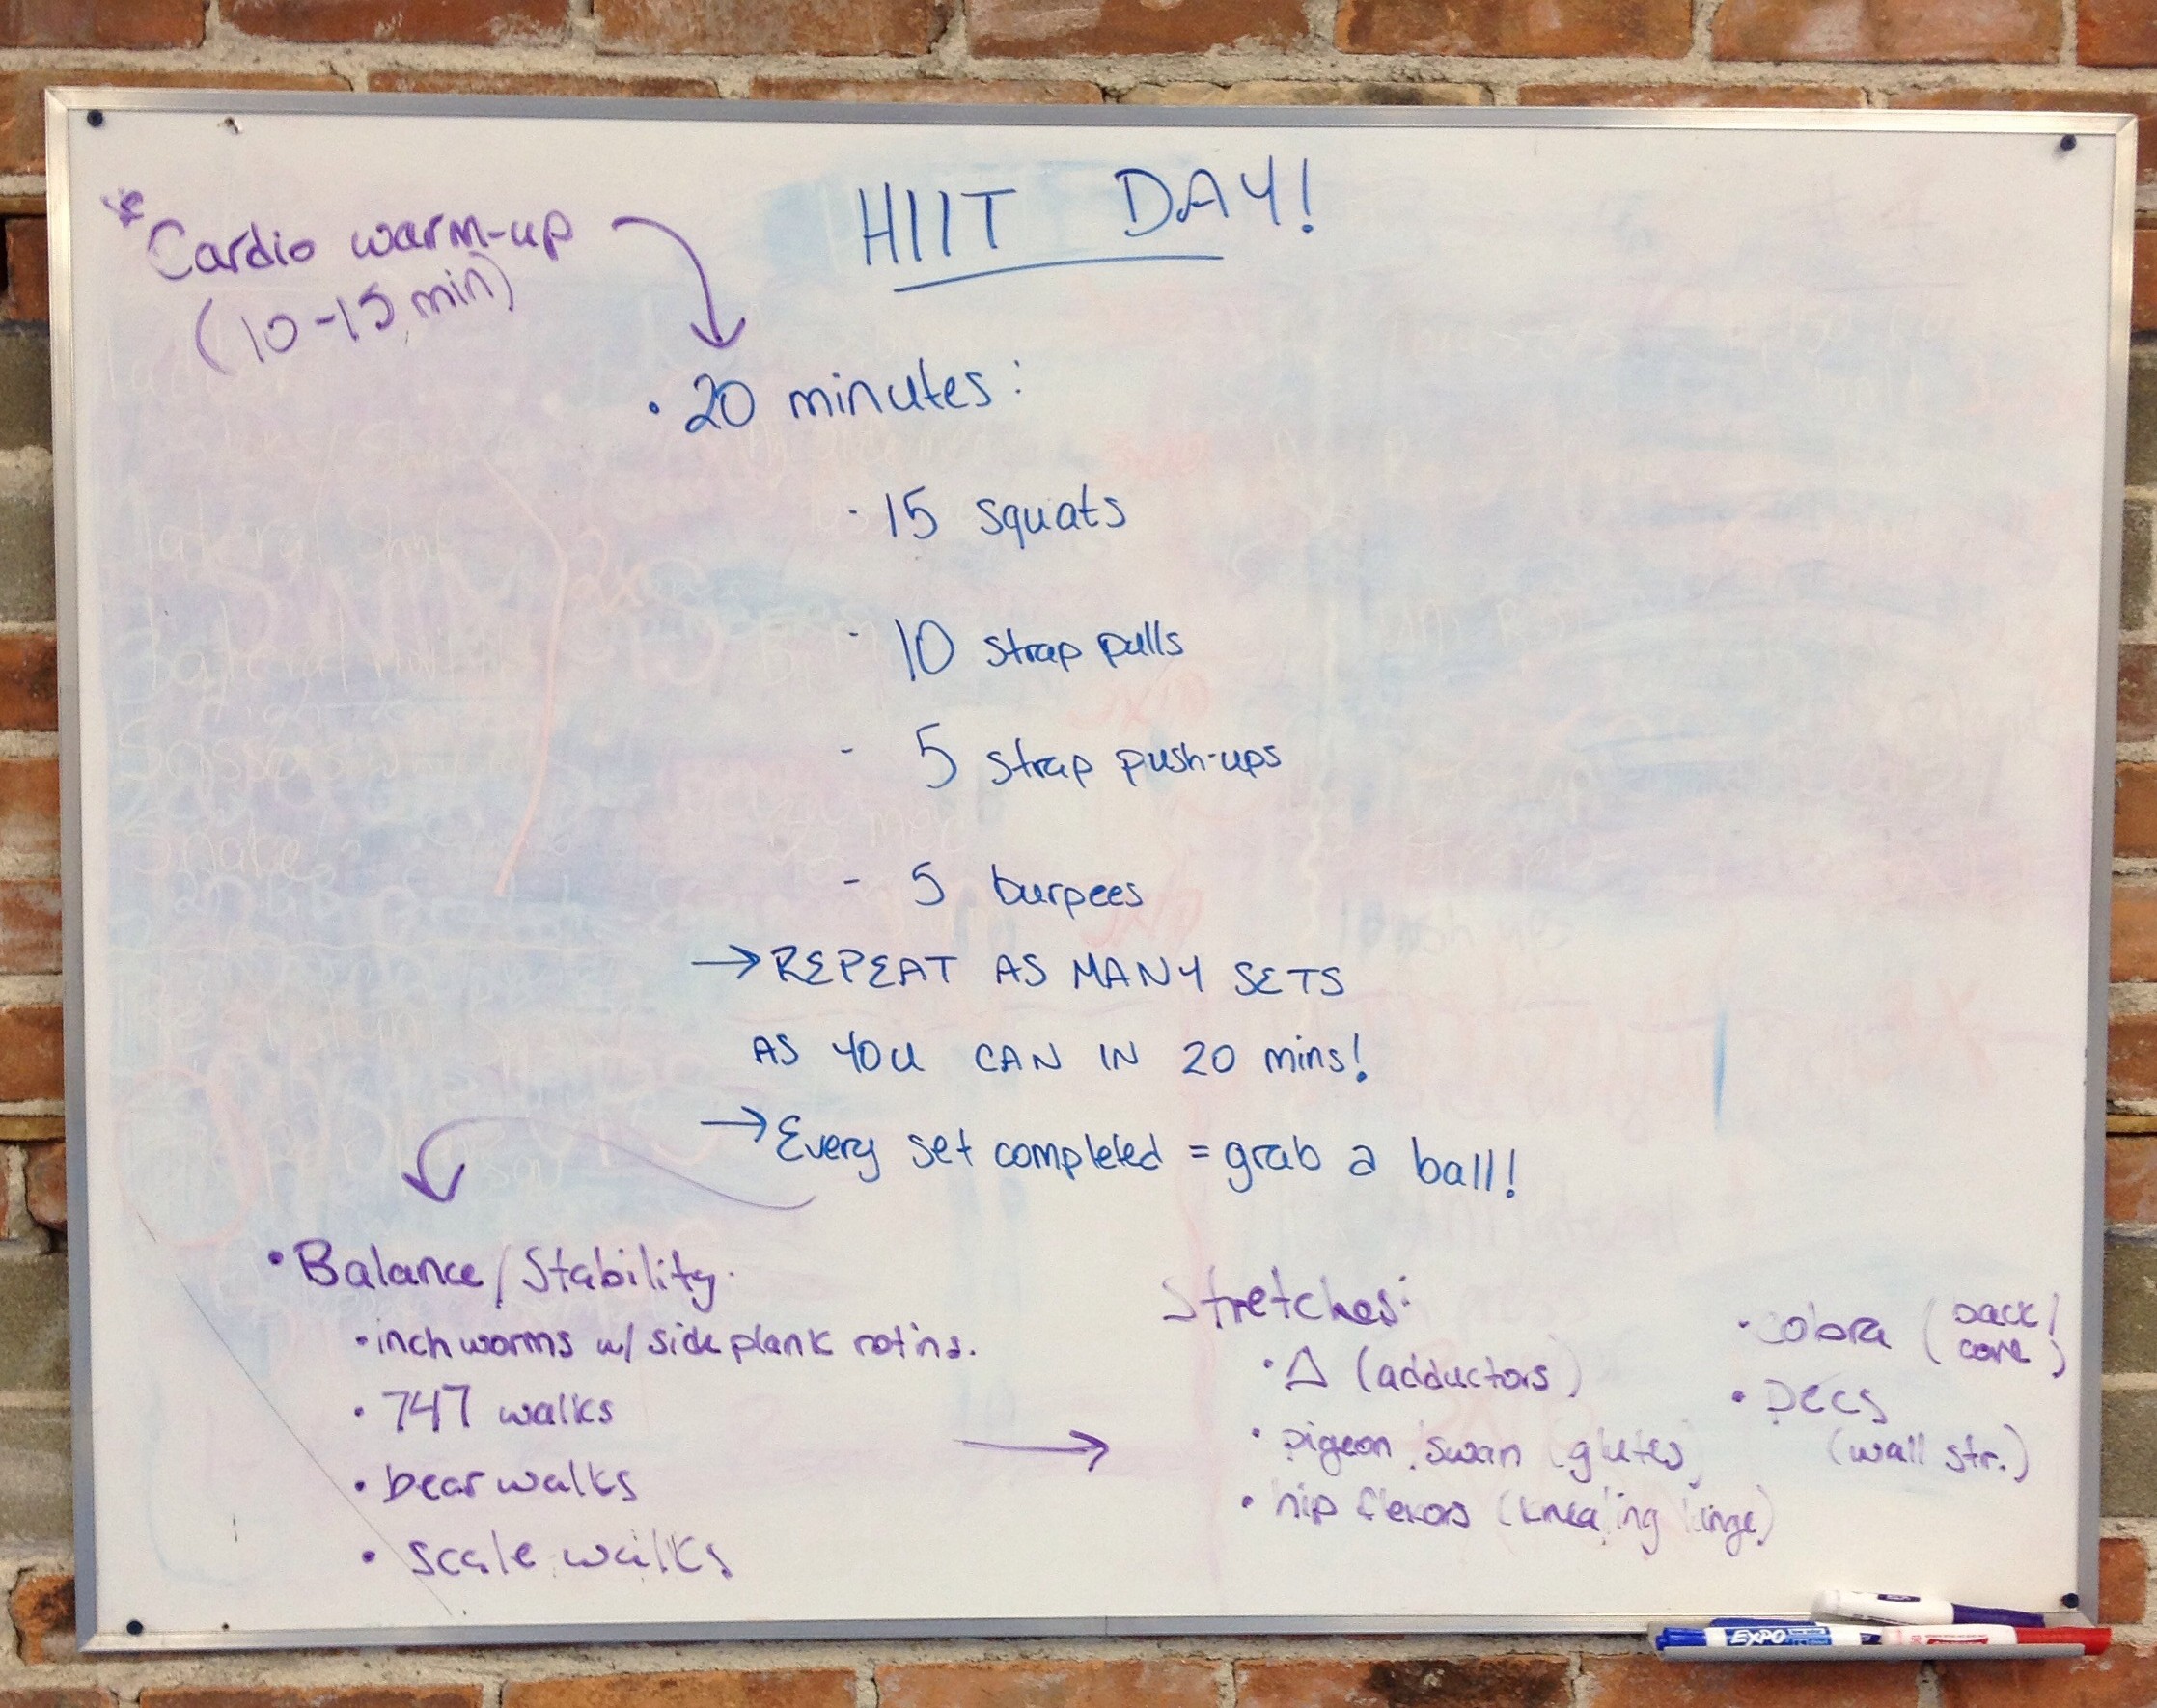 HIIT DAY!
*Cardio warm-up
(10-15 min)
• 20 minutes:
- 15 squats
- 10 strap pulls
- 5 strap push-ups
- 5 burpees
→ REPEAT AS MANY SETS
AS YOU CAN IN 20 mins!
→ Every set completed = grab a ball!
• Balance/Stability.
• inch worms w/ side plank rotins.
• 747 walks
• bear walks
• scale walks
Stretches:
• Δ (adductors)
• pigeon swan glutes
• hip flexors (kneeling lunge)
• cobra (back/
core)
• pecs
(wall str.)
EXPO